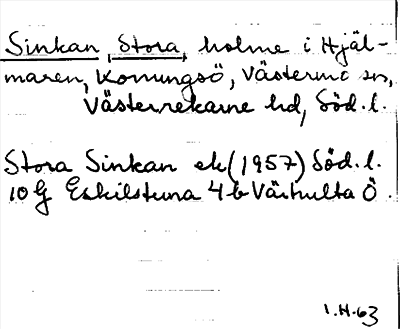 Sinkan, Stora, holme i Hjäl-
maren, Konungsö, Västermo sn,
Västerrekarne hd, Söd.l.
Stora Sinkan ek (1957) Söd.l.
10G Eskilstuna 4b Västhulta Ö
1.H.63